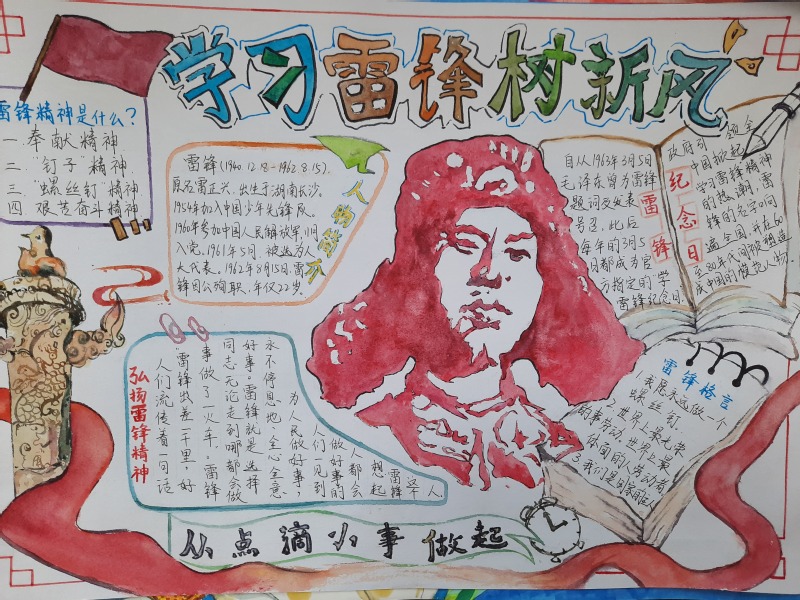 学习雷锋树新风
雷锋精神是什么？
一 奉献精神
二 钉子精神
三 螺丝钉精神
四 艰苦奋斗精神
人物简介
雷锋（1940.12.18-1962.8.15），
原名雷正兴，出生于湖南长沙，
1954年加入中国少年先锋队，
1960年参加中国人民解放军，同
入党。1961年5月，被选为人
大代表。1962年8月15日，雷
锋因公殉职，年仅22岁。
雷锋
纪念日
自从1963年3月5日
毛泽东曾为雷锋
题词又发表
号召，此后
每年的3月5
日都成为官
方指定的学
雷锋纪念日。
政府司
中国掀起
学习雷锋精神
的热潮，雷
锋的名字
遍全国，并在60
至80年代间被塑造
成中国的模范人物。
弘扬雷锋精神
人们流传着一句话
雷锋出差一千里，好
事做了一火车。雷锋
同志无论走到哪都会做
好事，雷锋就是选择
永不停息地，全心全意
为人民做好事，
人们一见到
做好事的
人都会
想起
雷锋
这个
人
雷锋格言
1 我愿永远做一个
螺丝钉。
2 世界上最光荣
的事劳动，世界上最
体面的人劳动者
3 我们是国家的主人
从点滴小事做起